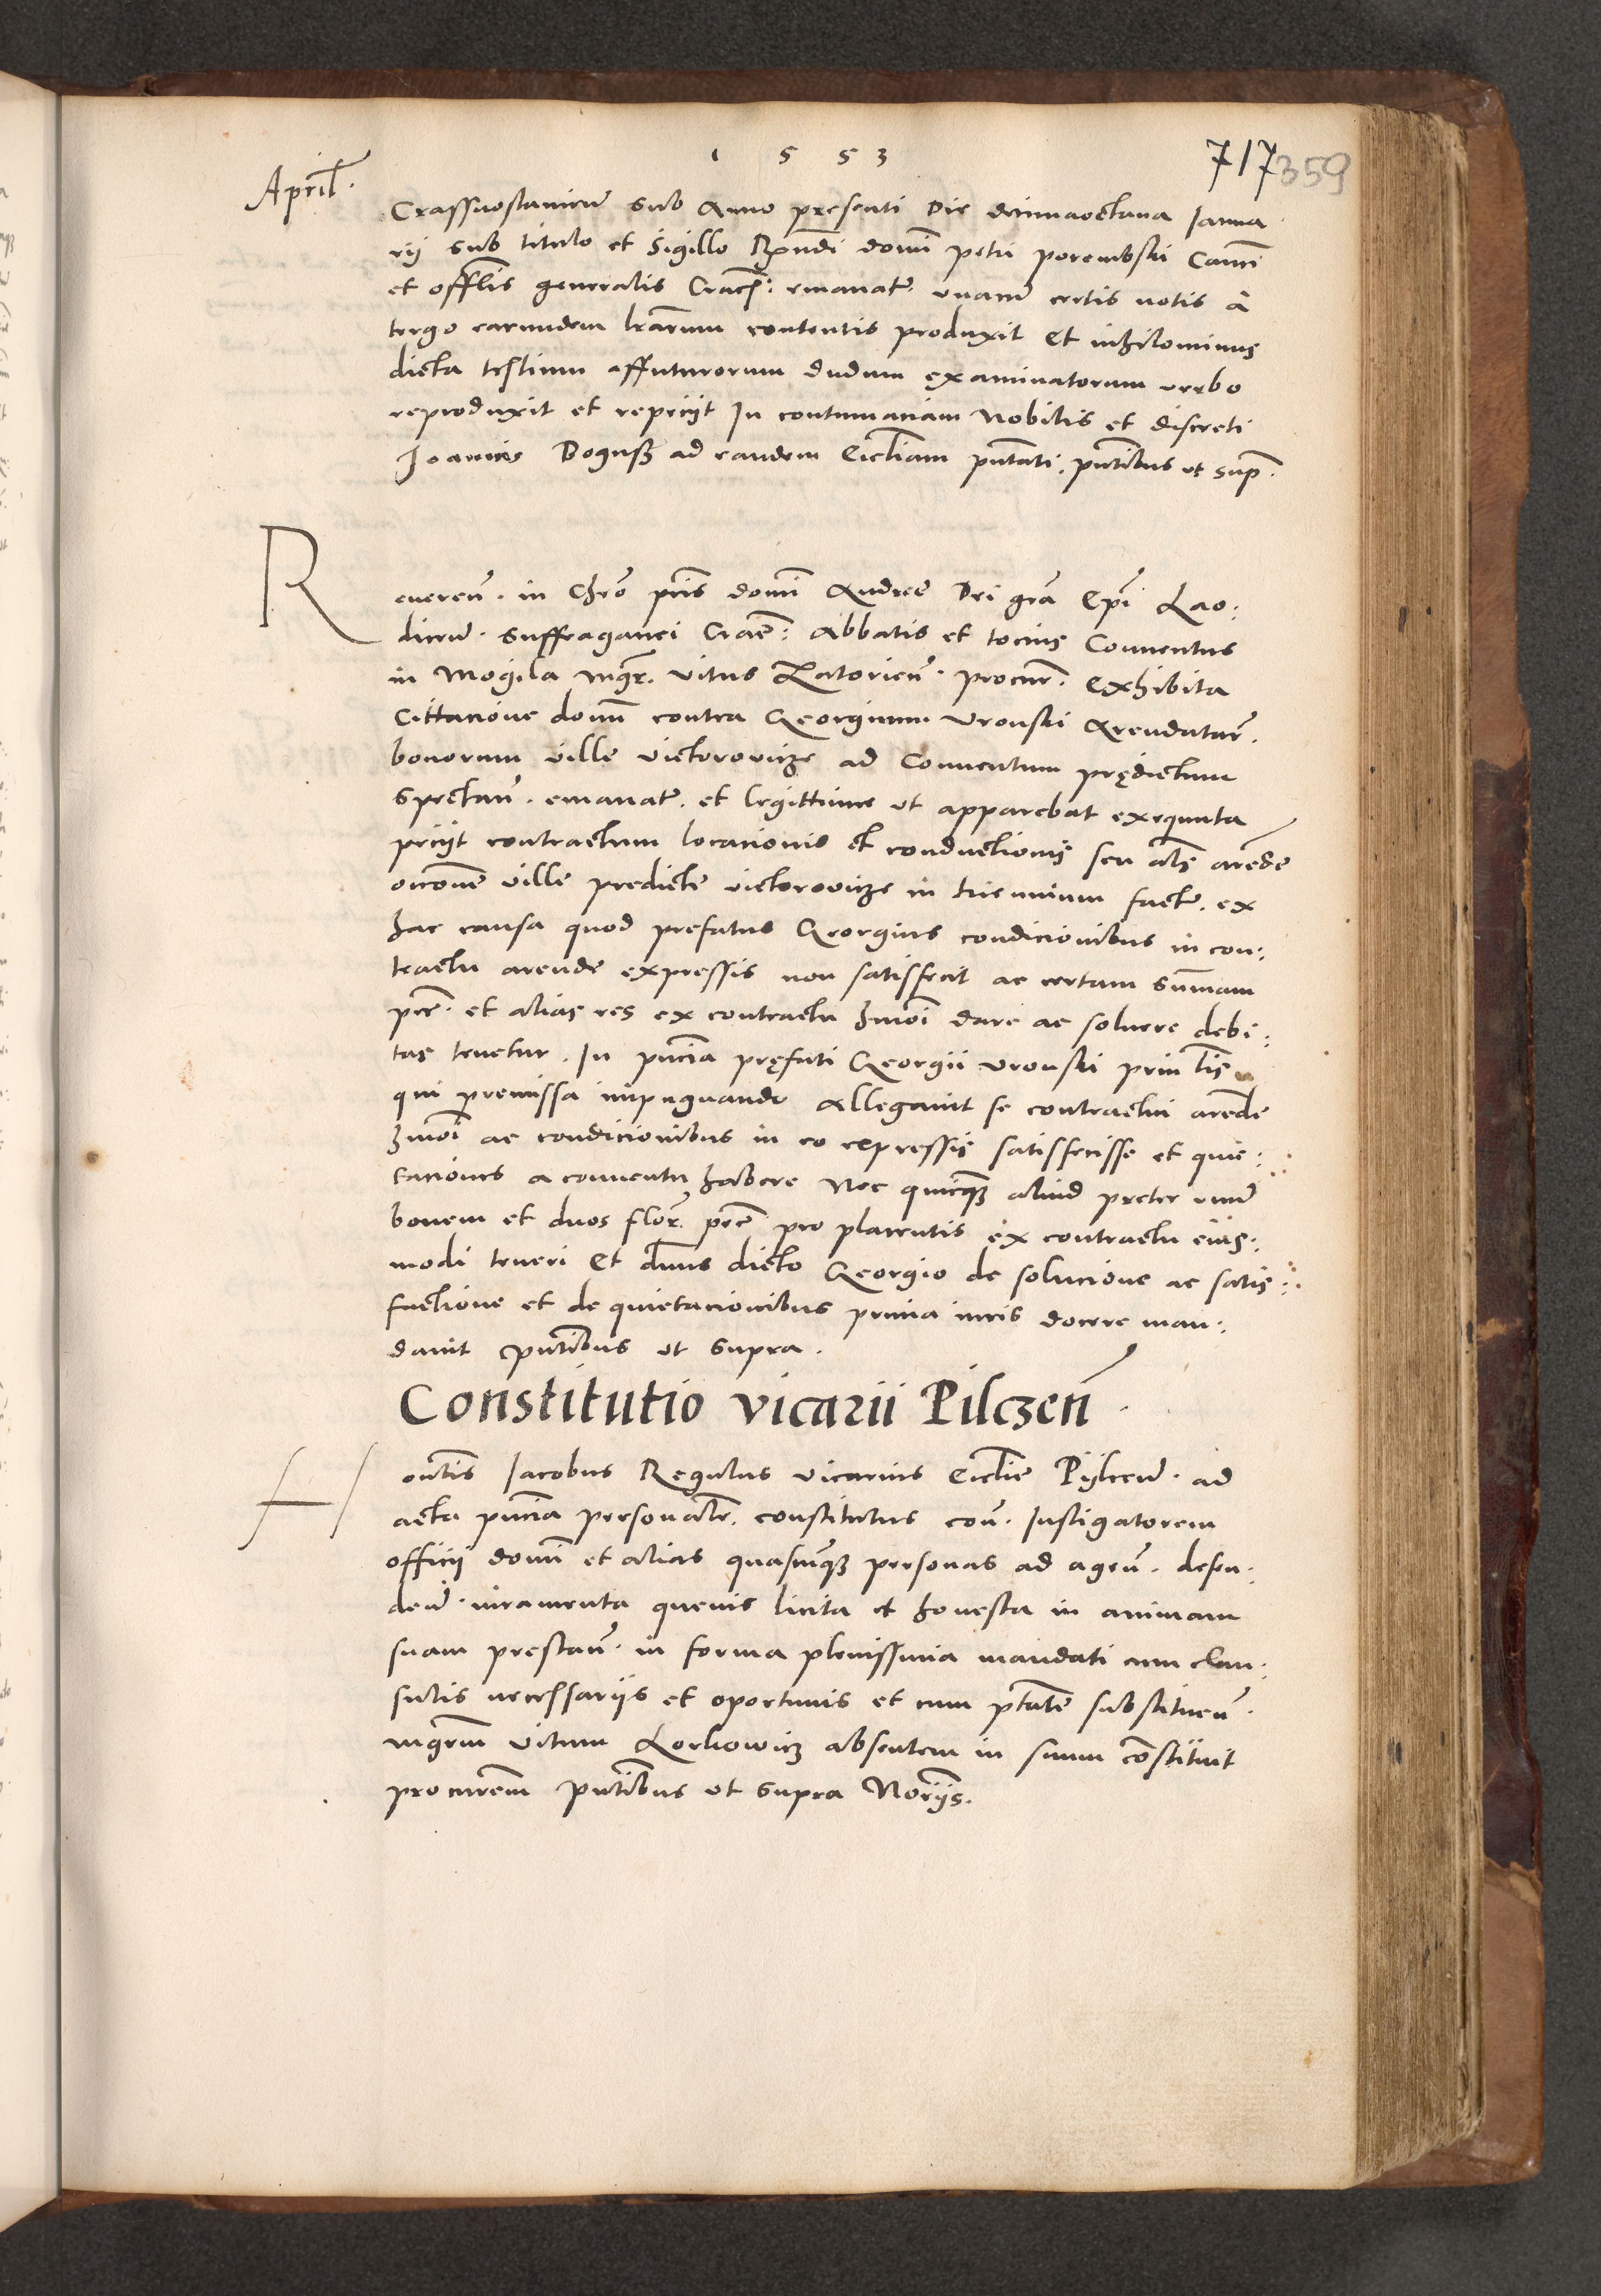 1553
717 359
April.
Crassnostanieñ sub Anno presenti Die decimaoctava Janua
rij sub titulo et Sigillo Rndi domi petri porembski Canci
et offlis generalis Crac: emanat. unam certis notis a
tergo earundem lrarum contentis produxit Et nihilominus
dicta testium affuturorum dudum examinatorum verbo
reproduxit et repetijt In contumaciam Nobilis et discreti
Joannis Bogusz ad eandem Eccliam pntati. pntibus ut sup.
Reveren. in Chro pris domi Andree Dei gra Epi Lao:
dicen. suffraganei Crac: Abbatis et tocius Conventus
in Mogila mgr. vitus Latorien. procur. Exhibita
Cittacione domi contra Georgium vronski Arendatar.
bonorum ville victorovicze ad Conventum prędictum
Spectan. emanat. et legittime ut apparebat exequuta
petijt contractum locacionis et conductionis seu als arede
ville predicte victorovicze in triennium fact. ex
hac causa quod prefatus Georgius condicionibus in con:
tractu arende expressis non satisfecit ac certam summam
pec. et alias res ex contractu hmoi dare ac solvere debi:
tas tenetur. In pncia pręfati Georgii vronski
qui premissa impugnando Allegavit se contractui arede
hmoi ac condicionibus in eo expressis satisfecisse et quie:
taciones a conventu habere Nec quicqz aliud preter unum
bovem et duos flor. pec pro placentis ex contractu eius:
modi teneri Et dnus dicto Georgio de solucione ac satis:
factione et de quietacionibus pruna iuris docere man:
davit pntibus ut supra.
Constitutio vicarii Pilczen.
Hontis Jacobus Regulus vicarius Ecclie Pijlcen. ad
acta pncia personalr. constitutus con. Instigatorem
officii domi et alias quascunqz personas ad agen. defen:
den. iuramenta quevis licita et honesta in animam
suam prestan. in forma plenissima mandati cum clau:
sulis necessariis et oportunis et cum ptate substituen.
mgrm vitum Lorkowicz absentem in suum constituit
procurem pntibus ut supra Norijs.